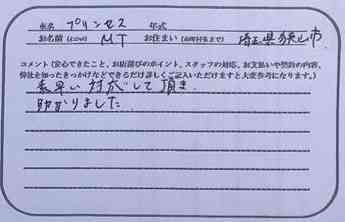 車名 プリンセス 年式
お名前(イニシャル) MT お住まい(市町村名まで) 埼玉県狭山市
コメント(安心できたこと、お店選びのポイント、スタッフの対応、お支払いや契約の内容、
弊社を知ったきっかけなどできるだけ詳しくご記入いただけますと大変参考になります。)
素早い対応して頂き
助かりました